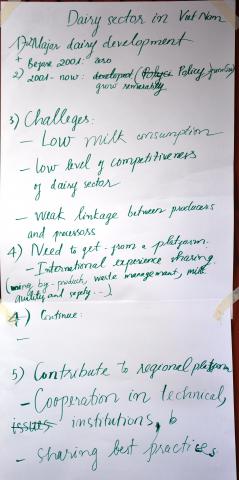 Dairy sector in Viet Nam
Major dairy development
+ Before 2001: zero
2) 2001 - now: developed (Policy Policy
grow
3) Challeges:
- Low milk consumption
- Low level of competitiveness
of dairy sector
- Weak linkage between producers
and processors
4) Need to get from a platform.
- International experience sharing
by-products, waste management, milk
quality and safety...)
4) Continue:
-
5) Contribute to regional platform
- Cooperation in technical,
issues institutions, b
- sharing best practices